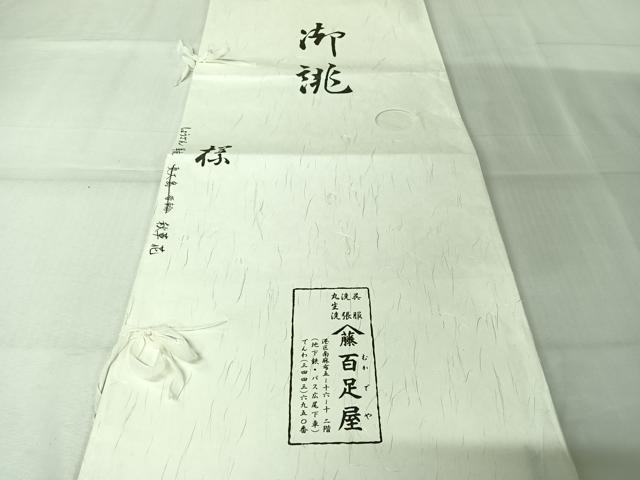 御誂
様
秋草花
呉服
洗張
丸生洗
藤百足屋
むかでや
港区南麻布五ー十六ー十 二階
(地下鉄・バス広尾下車)
でんわ(三四四三)六九五〇番